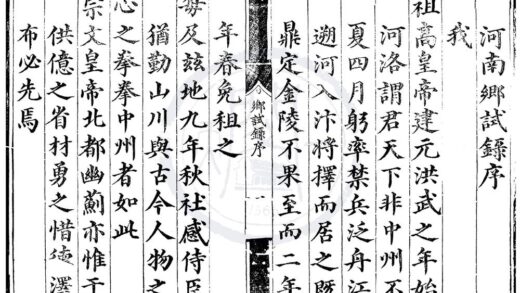 河南鄉試錄序
我
祖高皇帝建元洪武之年始
河洛謂君天下非中州不
夏四月躬率禁兵泛舟江
遡河入汴將擇而居之既
鼎定金陵不果至而二年
鄉試錄序
一
年春免租之
每及茲地九年秋社感侍臣
猶勤山川與古今人物之
心之拳拳中州者如此
宗文皇帝北都幽薊亦惟
供億之省材勇之惜德澤
布必先焉